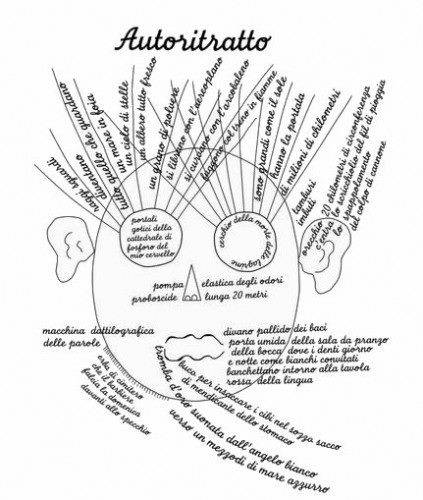 Autoritratto
raggi sguardi
diventano
tutto quello che guardano
un mare in foia
un cielo di stelle
un albero tutto fresco
un grano di polvere
si librano con l'aereoplano
si curvano con l'arcobaleno
fuggono col treno in fiamme
sono grandi come il sole
hanno la portata
di milioni di chilometri
tamburi
imbuti
orecchio 20 chilometri di circonferenza
c'entra lo scricchiolio del fil di pioggia
lo spappolamento
del colpo di cannone
portali
gotici della
cattedrale di
fosforo del
mio cervello
cerchio della morte delle lagrime
pompa elastica degli odori
proboscide lunga 20 metri
macchina dattilografica
delle parole
divano pallido dei baci
porta umida della sala da pranzo
della bocca dove i denti giorno
e notte come bianchi convitati
banchettano intorno alla tavola
rossa della lingua
buco per insaccare i cibi nel sozzo sacco
di mendicante dello stomaco
tromba d'oro suonata dall'angelo bianco
verso un mezzodì di mare azzurro
erba di cimitero
che il barbiere
falcia la domenica
davanti allo specchio